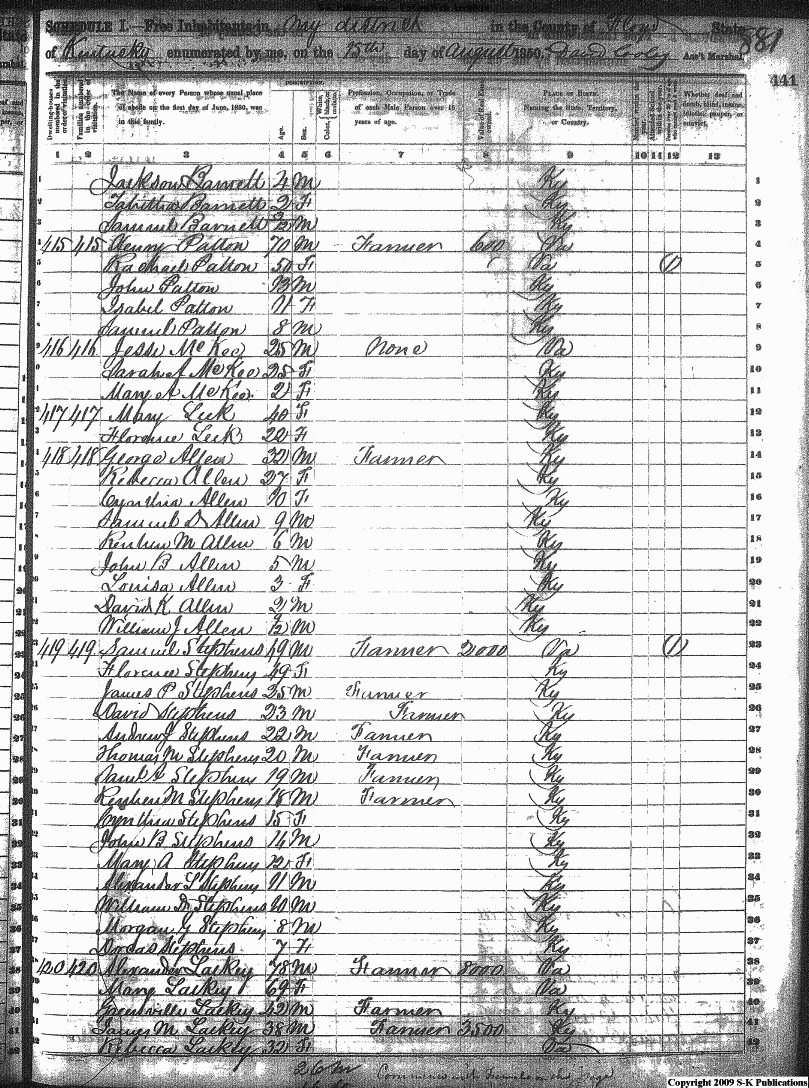 SCHEDULE I.—Free Inhabitants in Any district in the County of Floyd State
of Kentucky enumerated by me, on the 15th day of August 1850. David Cooley Ass't Marshal.
881
441
Dwelling-houses numbered in the order of visitation.
Families numbered in the order of visitation.
The Name of every Person whose usual place of abode on the first day of June, 1850, was in this family.
DESCRIPTION.
Age.
Sex.
Color
Profession, Occupation, or Trade of each Male Person over 15 years of age.
Value of Real Estate owned.
PLACE OF BIRTH.
Naming the State, Territory, or Country.
Whether deaf and dumb, blind, insane, idiotic, pauper, or convict.
1 2 3 4 5 6 7 8 9 10 11 12 13
1 Jackson Barnett 4 M Ky 1
2 Tabitha Barnett 2 F Ky 2
3 Samuel Barnett M Ky 3
4 415 415 Henry Patton 70 M Farmer 600 Va 4
5 Rachael Patton F Va (1) 5
6 John Patton 13 M Ky 6
7 Isabel Patton 11 F Ky 7
8 Samuel Patton 8 M Ky 8
9 416 416 Jesse McKee 25 M None Va 9
10 Sarah A McKee 25 F Ky 10
11 Mary A McKee 2 F Ky 11
12 417 417 Mary Leek 40 F Ky 12
13 Florence Leek 22 F Ky 13
14 418 418 George Allen 32 M Farmer Ky 14
15 Rebecca Allen 27 F Ky 15
16 Cynthia Allen 10 F Ky 16
17 Samuel D Allen 9 M Ky 17
18 Reuben M Allen 6 M Ky 18
19 John B Allen 5 M Ky 19
20 Louisa Allen 3 F Ky 20
21 David K Allen 2 M Ky 21
22 William J Allen M Ky 22
23 419 419 Samuel Stephens 49 M Farmer 2000 Va (1) 23
24 Florence Stephens 49 F Ky 24
25 James P Stephens 25 M Farmer Ky 25
26 David Stephens 23 M Farmer Ky 26
27 Andrew J Stephens 22 M Farmer Ky 27
28 Thomas M Stephens 20 M Farmer Ky 28
29 Stephens 19 M Farmer Ky 29
30 Reuben M Stephens 18 M Farmer Ky 30
31 Cynthia Stephens 15 F Ky 31
32 John B Stephens 14 M Ky 32
33 Mary A Stephens 12 F Ky 33
34 Alexander L Stephens 11 M Ky 34
35 William Stephens 10 M Ky 35
36 Morgan G Stephens 8 M Ky 36
37 Dorcas Stephens 7 F Ky 37
38 420 420 Alexander Lackey 78 M Farmer 8000 Va 38
39 Mary Lackey 69 F Va 39
40 Greenville Lackey 42 M Farmer Ky 40
41 James M Lackey 38 M Farmer 3500 Ky 41
42 Rebecca Lackey 32 F Va 42
26 M
Copyright 2009 S-K Publications